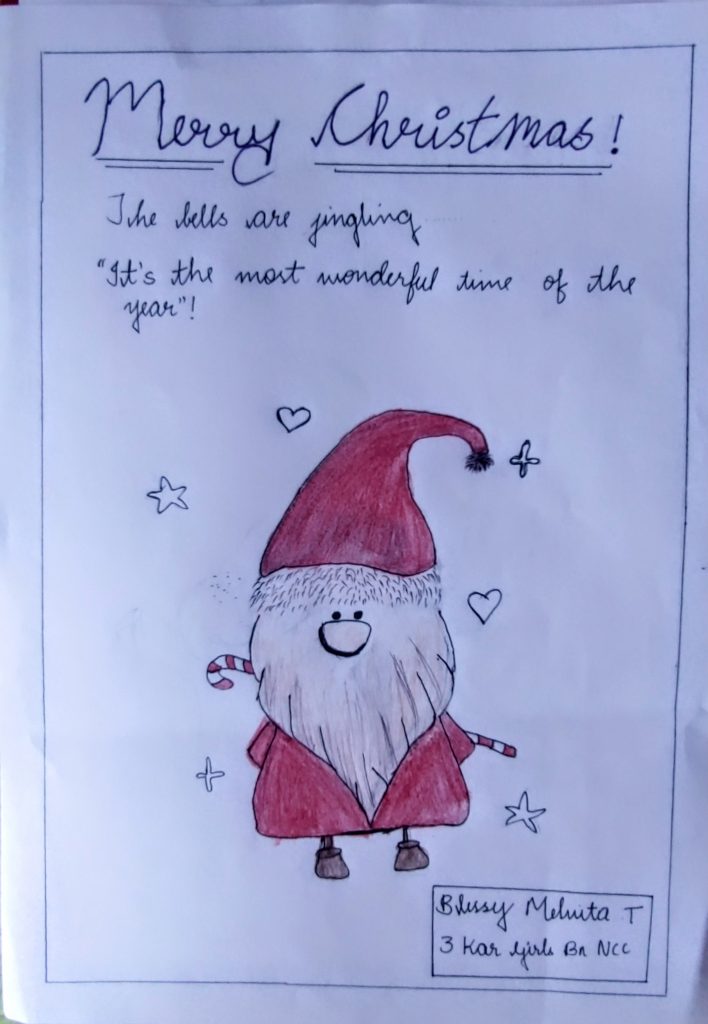 Merry Christmas!
The bells are jingling
"It's the most wonderful time of the
year"!
Blessy Melvita T
3 Kar Girls Bn NCC